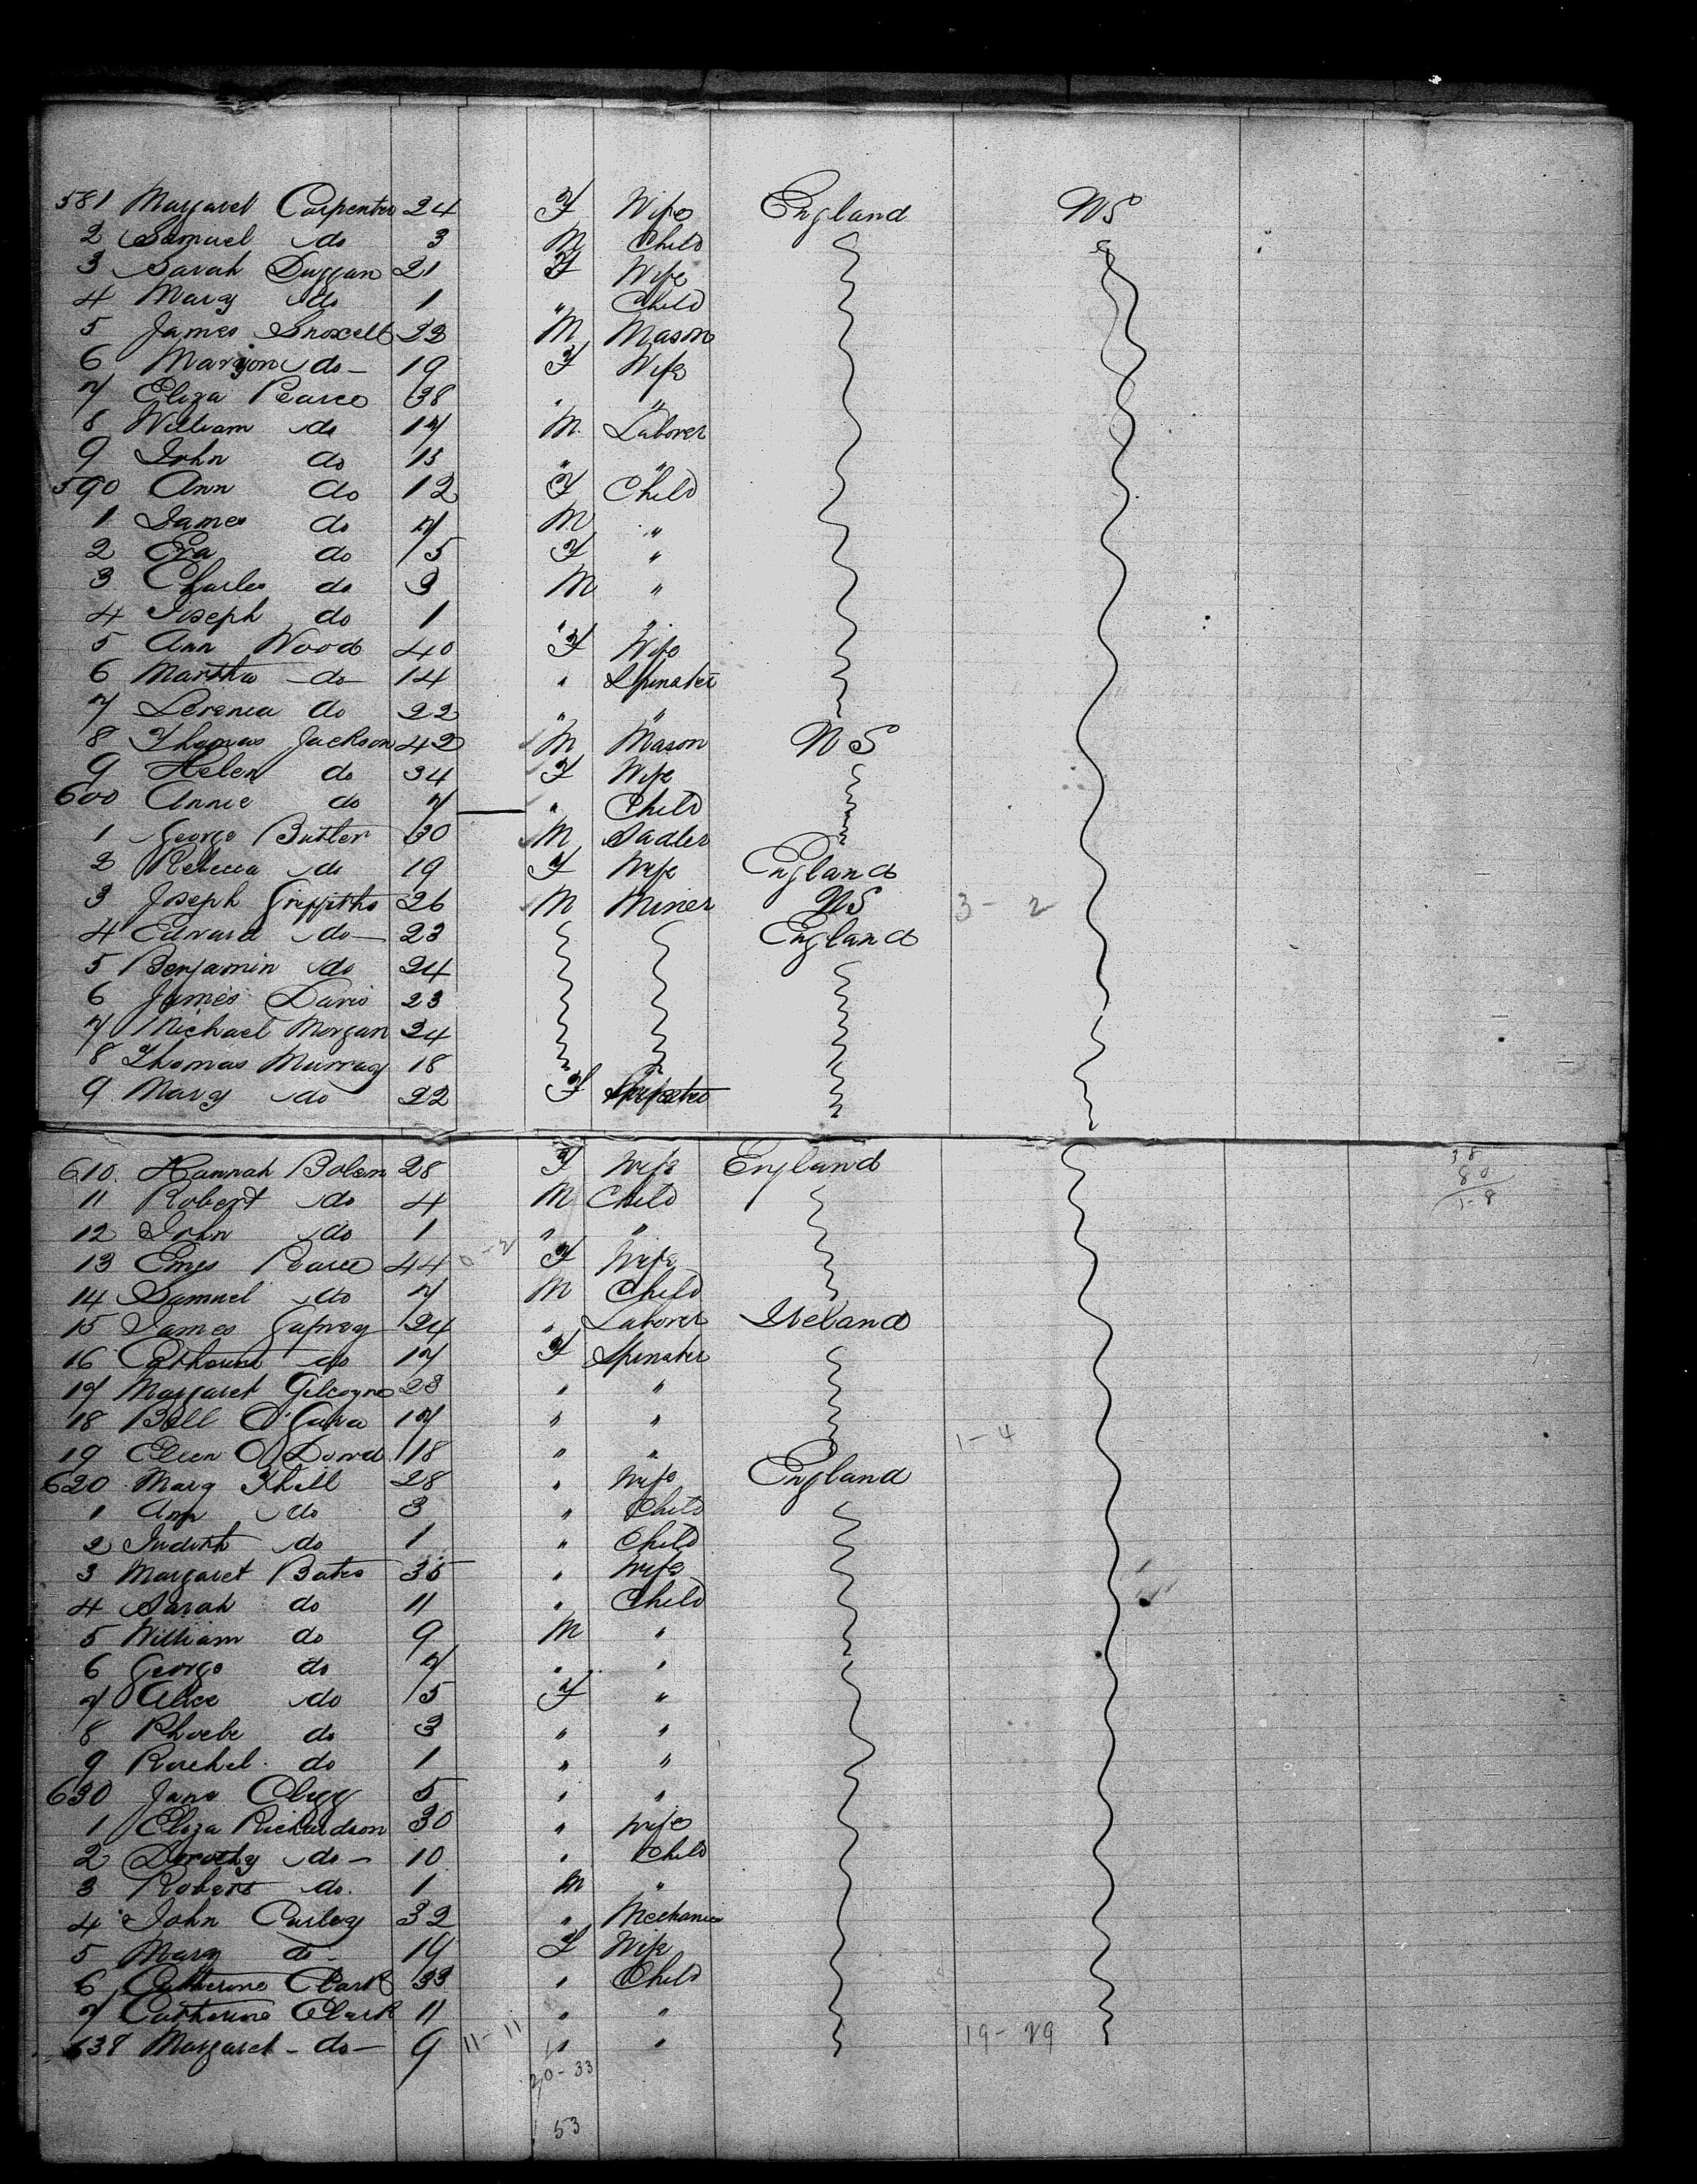 581 Margaret Carpenter 24 F Wife England US
2 Samuel do 3 M Child
3 Sarah Duggan 21 F Wife
4 Mary do 1 " Child
5 James Snoxell 22 M Mason
6 do 19 F Wife
7 Eliza Pearce 38 " "
8 William do 17 M Laborer
9 John do 15 " "
590 Ann do 12 F Child
1 James do 7 M "
2 Eva do 5 F "
3 Charles do 3 M "
4 Joseph do 1 " "
5 Ann Wood 40 F Wife
6 Martha do 14 " Spinster
7 do 22 " "
8 Thomas Jackson 42 M Mason US
9 Helen do 34 F Wife
600 Annie do 7 " Child
1 George Butler 30 M Sadler
2 Rebecca do 19 F Wife England
3 Joseph Griffiths 26 M Miner US 3-2
4 Edward do 23 England
5 Benjamin do 24
6 James Davis 23
7 Michael Morgan 24
8 Thomas Murray 18
9 Mary do 22 F
610. Hannah Bolem 28 F Wife England
11 Robert do 4 M Child
12 John do 1 " "
13 Pearce 44 F Wife
14 Samuel do 7 M Child
15 James Gafney 24 " Laborer Ireland
16 Catherine do 17 F Spinster
17 Margaret Gilcoyne 23 " "
18 Bell O'Gara 17 " "
19 Ellen O'Dowd 18 " " 1-4
620 Mary Thill 28 " Wife England
1 Ann do 3 " Child
2 Judith do 1 " Child
3 Margaret Bates 35 " Wife
4 Sarah do 11 " Child
5 William do 9 M "
6 George do 7 " "
7 Alice do 5 F "
8 Phoebe do 3 " "
9 Rachel do 1 " "
630 Jane Clegg 5 " "
1 Eliza Richardson 30 " Wife
2 Dorothy do 10 " Child
3 Robert do. 1 M "
4 John Curley 32 " Mechanic
5 Mary do 19 F Wife
6 Catherine Clark 33 " Child
7 Catherine Clark 11 " "
638 Margaret do 9 11-11 " " 19-29
20-33
53